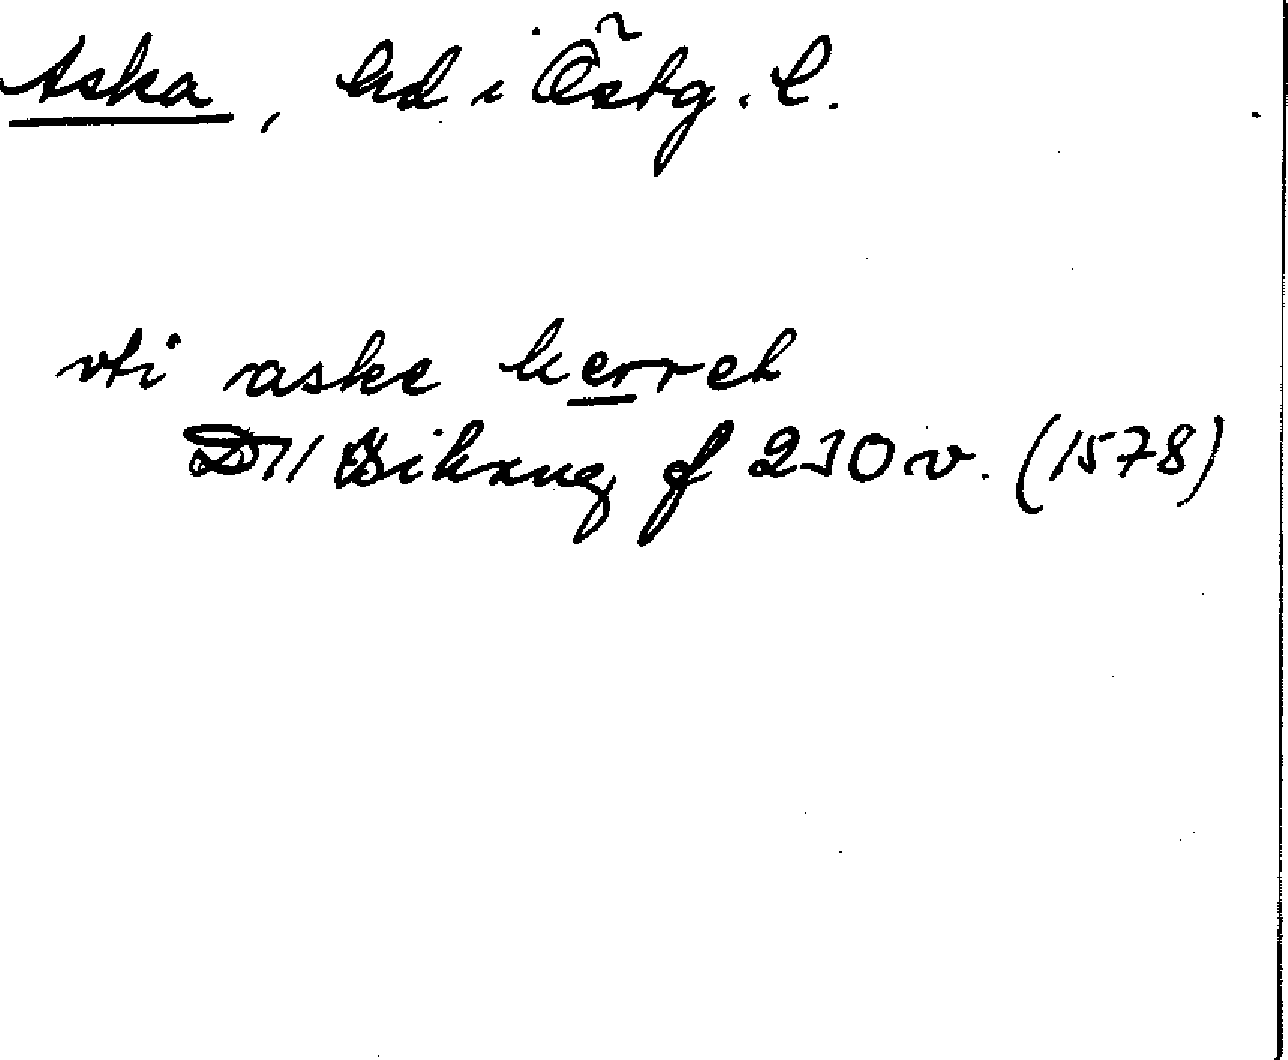 Aska, hd i Östg. l.
vti aske herret
D 11 Bihang f 230 v. (1578)